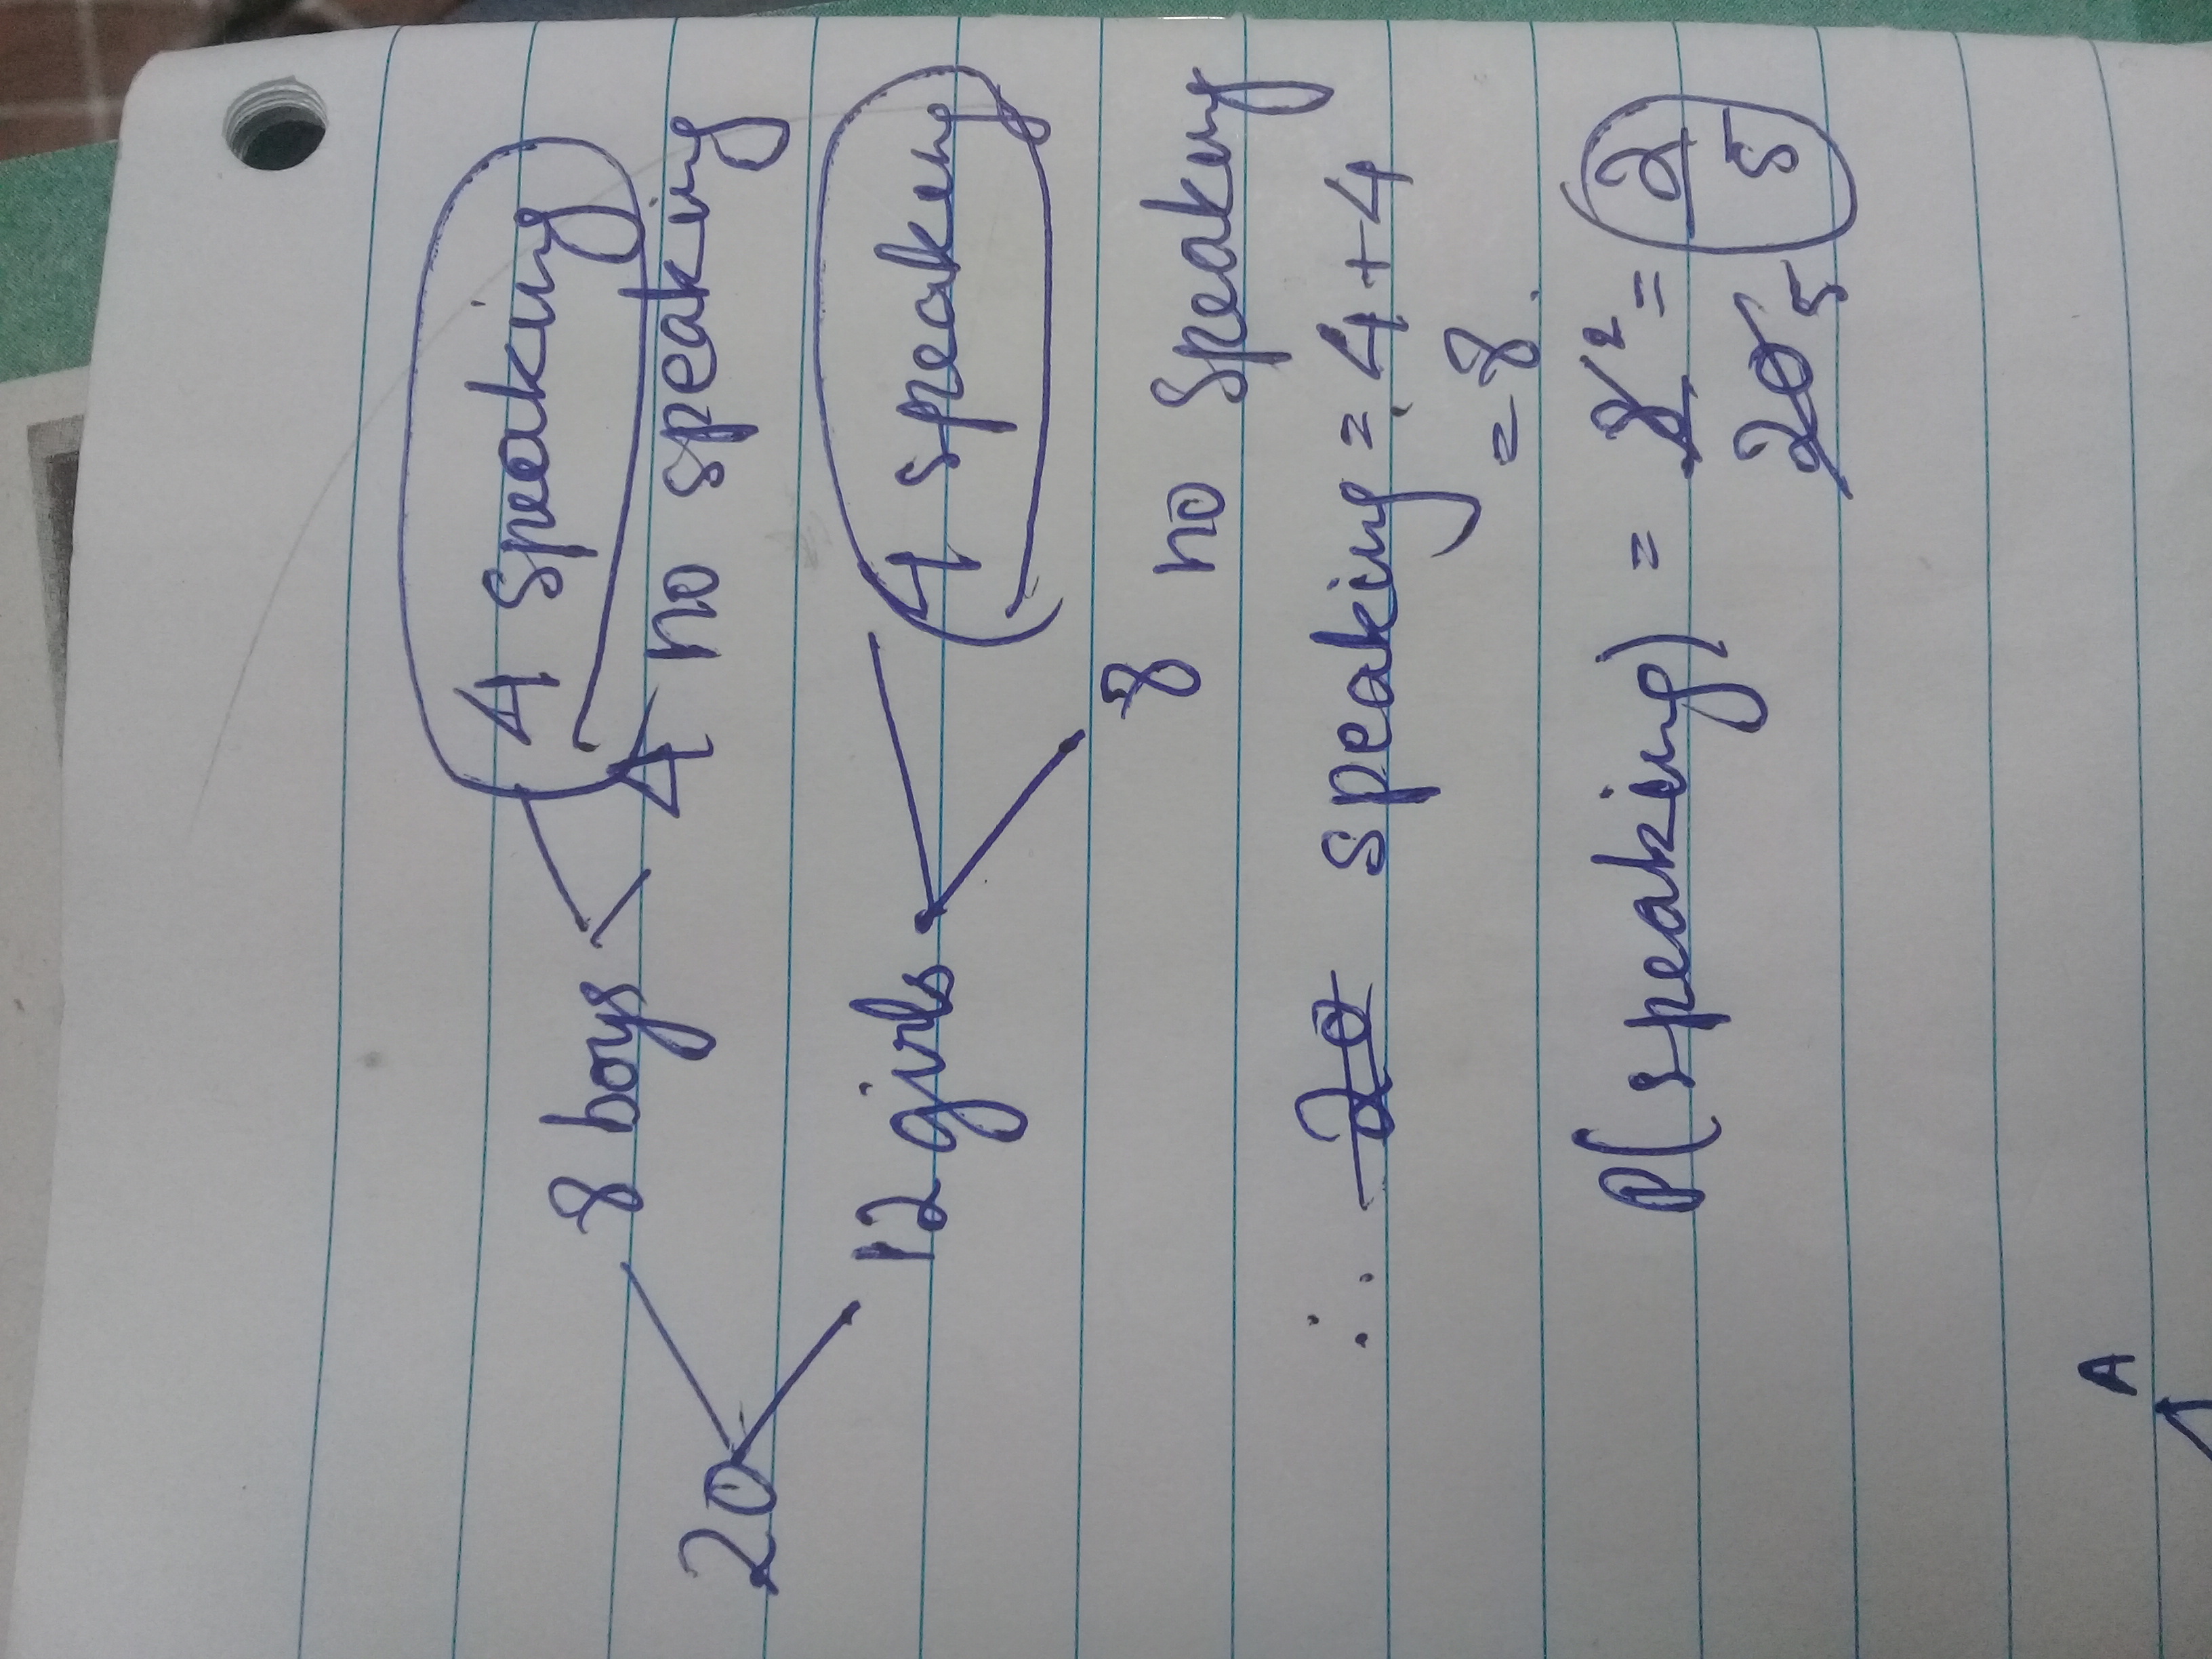 4 speaking
8 boys
4 no speaking
20
4 speaking
12 girls
8 no speaking
∴ 20 speaking = 4 + 4
= 8
P(speaking) = 8 2 / 20 5 = 2/5
A